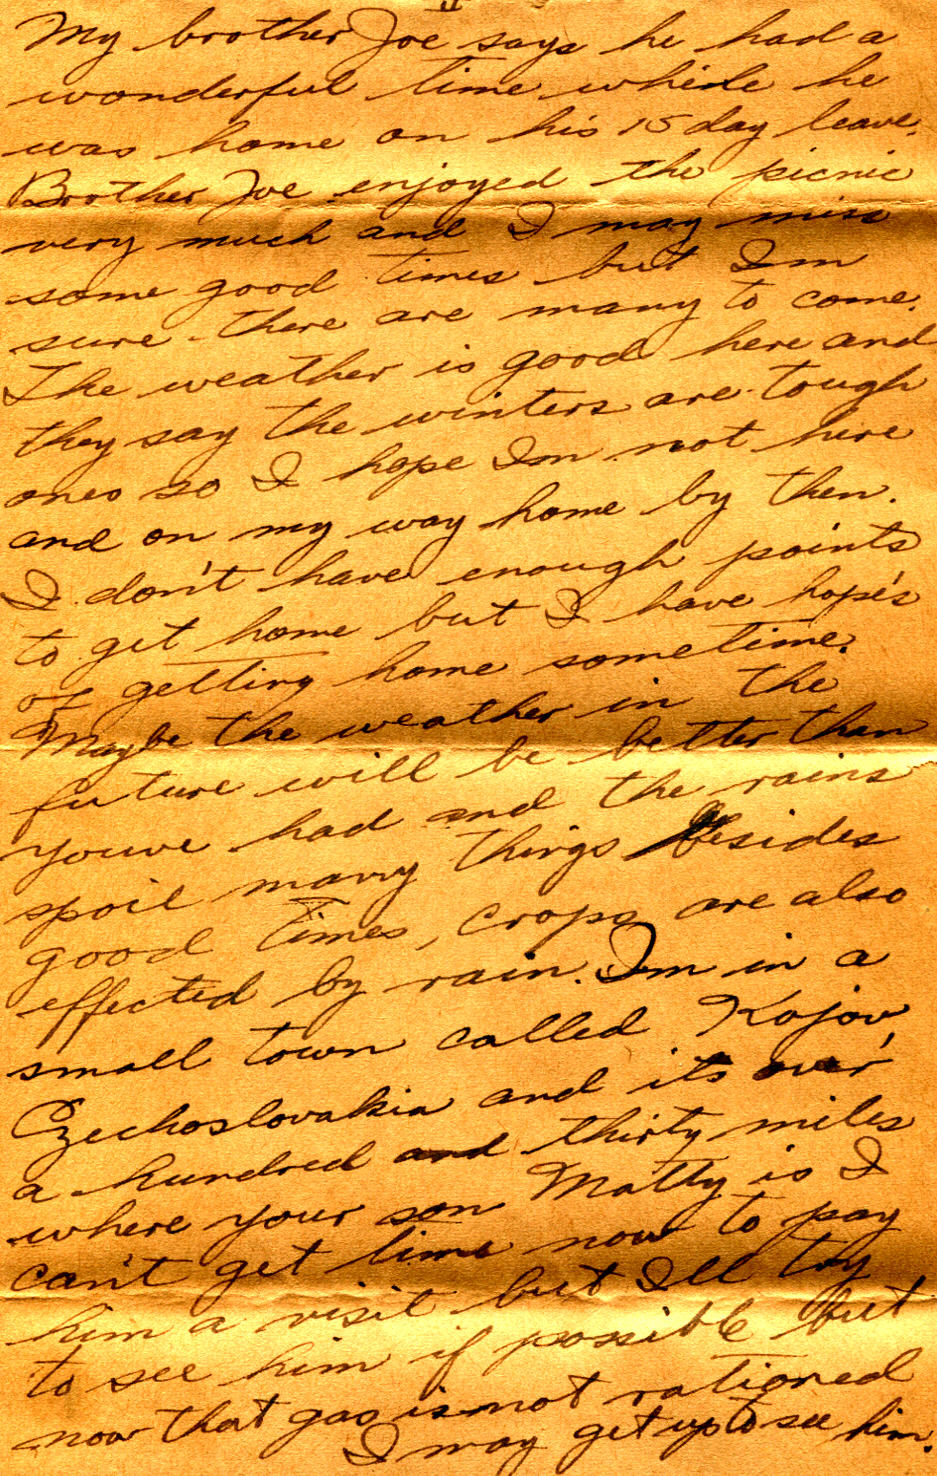 II
My brother Joe says he had a
wonderful time while he
was home on his 15 day leave.
Brother Joe enjoyed the picnic
very much and I may miss
some good times but Im
sure there are many to come.
The weather is good here and
they say the winters are tough
ones so I hope Im not here
and on my way home by then.
I don't have enough points
to get home but I have hope's
of getting home sometime.
Maybe the weather in the
future will be better than
youve had and the rains
spoil many things Besides
good times, crops are also
effected by rain. Im in a
small town called Kojov,
Czechoslovakia and its over
a hundred and thirty miles
where your son Matty is I
can't get time now to pay
him a visit but Ill try
to see him if possible but
now that gas is not rationed
I may get up to see him.